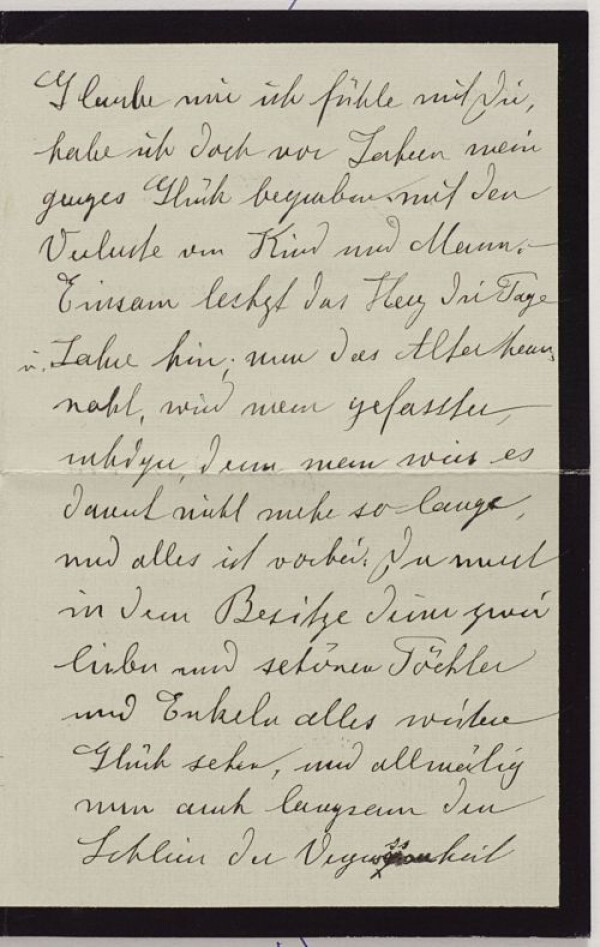 Glaube mir ich fühle mit Dir,
habe ich doch vor Jahren mein
ganzes Glück begraben mit den
Verluste von Kind und Mann.
Einsam das Herz die Tage
u. Jahre hin, nun das Alter heran
naht, wird man gefasster,
denn man weis es
dauert nicht mehr so lange,
und alles ist vorbei. Du must
in dem Besitze deiner zwei
lieben und schönen Töchter
und Enkeln alles weitere
Glück sehen, und allmälig
nun auch langsam den
Schleier der